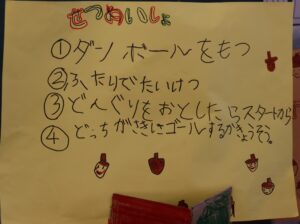 せつめいしょ
①ダンボールをもつ
②ふたりでたいけつ
③どんぐりをおとしたらスタートから
④どっちがさきにゴールするかきょうそう。